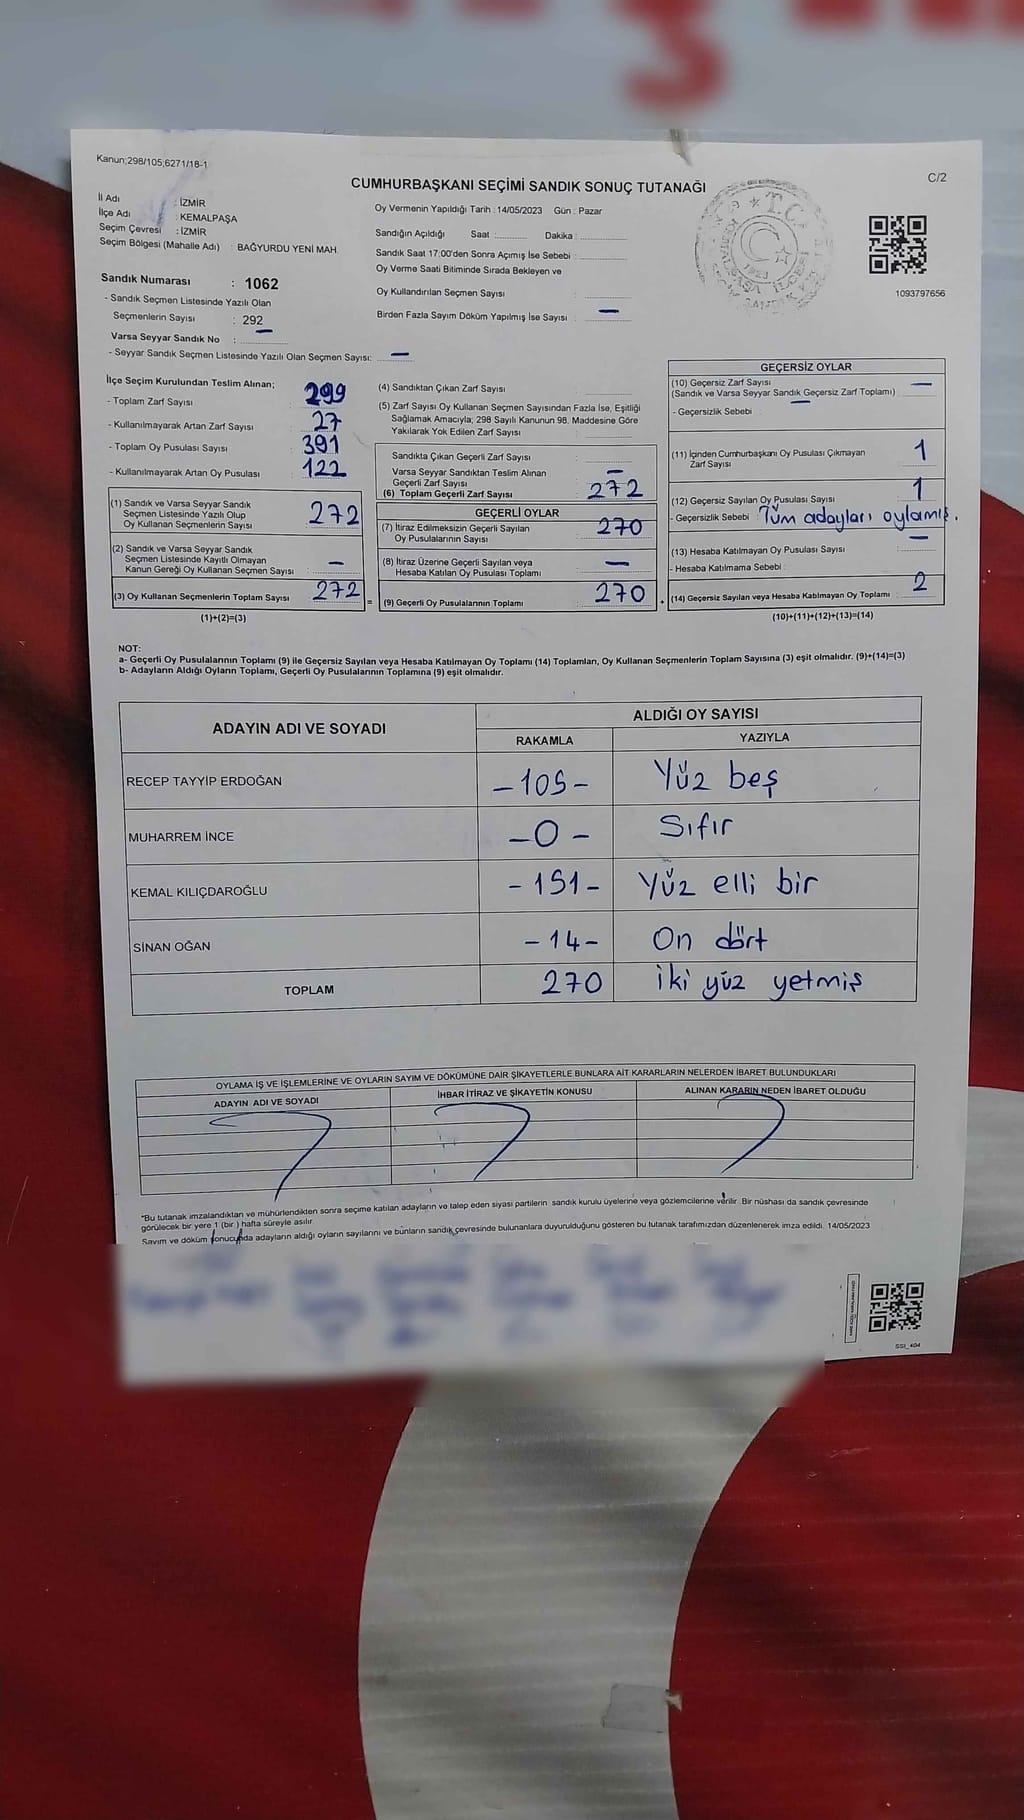 Kanun;298/105;6271/18-1
CUMHURBAŞKANI SEÇİMİ SANDIK SONUÇ TUTANAĞI
C/2
İl Adı : İZMİR
İlçe Adı : KEMALPAŞA
Seçim Çevresi : İZMİR
Seçim Bölgesi (Mahalle Adı) : BAĞYURDU YENİ MAH.
Sandık Numarası : 1062
- Sandık Seçmen Listesinde Yazılı Olan
Seçmenlerin Sayısı : 292
Varsa Seyyar Sandık No : —
- Seyyar Sandık Seçmen Listesinde Yazılı Olan Seçmen Sayısı: —
Oy Vermenin Yapıldığı Tarih : 14/05/2023 Gün : Pazar
Sandığın Açıldığı Saat : Dakika :
Sandık Saat 17:00'den Sonra Açımış İse Sebebi :
Oy Verme Saati Bitiminde Sırada Bekleyen ve
Oy Kullandırılan Seçmen Sayısı :
Birden Fazla Sayım Döküm Yapılmış İse Sayısı : —
T.C.
1093797656
İlçe Seçim Kurulundan Teslim Alınan;
- Toplam Zarf Sayısı : 299
- Kullanılmayarak Artan Zarf Sayısı : 27
- Toplam Oy Pusulası Sayısı : 391
- Kullanılmayarak Artan Oy Pusulası : 122
(1) Sandık ve Varsa Seyyar Sandık
Seçmen Listesinde Yazılı Olup
Oy Kullanan Seçmenlerin Sayısı : 272
(2) Sandık ve Varsa Seyyar Sandık
Seçmen Listesinde Kayıtlı Olmayan
Kanun Gereği Oy Kullanan Seçmen Sayısı : —
(3) Oy Kullanan Seçmenlerin Toplam Sayısı : 272 =
(1)+(2)=(3)
(4) Sandıktan Çıkan Zarf Sayısı :
(5) Zarf Sayısı Oy Kullanan Seçmen Sayısından Fazla İse, Eşitliği
Sağlamak Amacıyla; 298 Sayılı Kanunun 98. Maddesine Göre
Yakılarak Yok Edilen Zarf Sayısı :
Sandıkta Çıkan Geçerli Zarf Sayısı :
Varsa Seyyar Sandıktan Teslim Alınan
Geçerli Zarf Sayısı : —
(6) Toplam Geçerli Zarf Sayısı : 272
GEÇERLİ OYLAR
(7) İtiraz Edilmeksizin Geçerli Sayılan
Oy Pusulalarının Sayısı : 270
(8) İtiraz Üzerine Geçerli Sayılan veya
Hesaba Katılan Oy Pusulası Toplamı : —
(9) Geçerli Oy Pusulalarının Toplamı : 270
GEÇERSİZ OYLAR
(10) Geçersiz Zarf Sayısı
(Sandık ve Varsa Seyyar Sandık Geçersiz Zarf Toplamı) : —
- Geçersizlik Sebebi : —
(11) İçinden Cumhurbaşkanı Oy Pusulası Çıkmayan
Zarf Sayısı : 1
(12) Geçersiz Sayılan Oy Pusulası Sayısı : 1
- Geçersizlik Sebebi : Tüm adayları oylamış.
(13) Hesaba Katılmayan Oy Pusulası Sayısı : —
- Hesaba Katılmama Sebebi :
(14) Geçersiz Sayılan veya Hesaba Katılmayan Oy Toplamı : 2
(10)+(11)+(12)+(13)=(14)
NOT:
a- Geçerli Oy Pusulalarının Toplamı (9) ile Geçersiz Sayılan veya Hesaba Katılmayan Oy Toplamı (14) Toplamları, Oy Kullanan Seçmenlerin Toplam Sayısına (3) eşit olmalıdır. (9)+(14)=(3)
b- Adayların Aldığı Oyların Toplamı, Geçerli Oy Pusulalarının Toplamına (9) eşit olmalıdır.
ADAYIN ADI VE SOYADI ALDIĞI OY SAYISI
RAKAMLA YAZIYLA
RECEP TAYYİP ERDOĞAN -105- Yüz beş
MUHARREM İNCE -0- Sıfır
KEMAL KILIÇDAROĞLU -151- Yüz elli bir
SİNAN OĞAN -14- On dört
TOPLAM 270 iki yüz yetmiş
OYLAMA İŞ VE İŞLEMLERİNE VE OYLARIN SAYIM VE DÖKÜMÜNE DAİR ŞİKAYETLERLE BUNLARA AİT KARARLARIN NELERDEN İBARET BULUNDUKLARI
ADAYIN ADI VE SOYADI İHBAR İTİRAZ VE ŞİKAYETİN KONUSU ALINAN KARARIN NEDEN İBARET OLDUĞU
*Bu tutanak imzalandıktan ve mühürlendikten sonra seçime katılan adayların ve talep eden siyasi partilerin sandık kurulu üyelerine veya gözlemcilerine verilir. Bir nüshası da sandık çevresinde
görülecek bir yere 1 (bir ) hafta süreyle asılır.
Sayım ve döküm sonucunda adayların aldığı oyların sayılarını ve bunların sandık çevresinde bulunanlara duyurulduğunu gösteren bu tutanak tarafımızdan düzenlenerek imza edildi. 14/05/2023
SSI_404